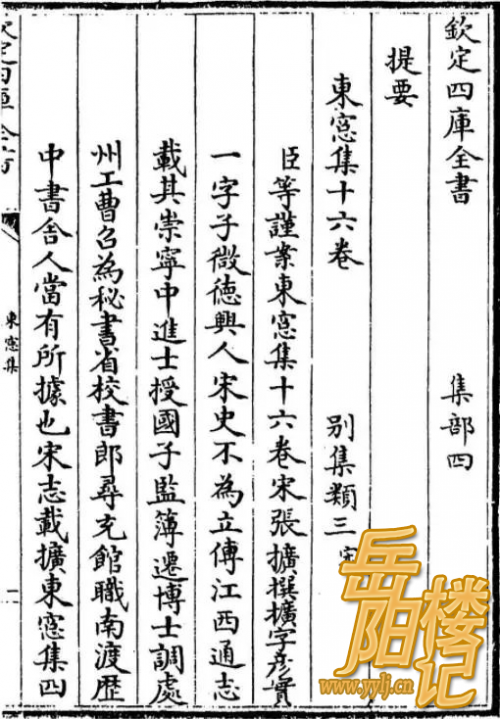 欽定四庫全書 集部四
提要
東窓集十六卷 别集類三
臣等謹案東窓集十六卷宋張擴撰擴字彦實
一字子微徳興人宋史不為立傳江西通志
載其崇寧中進士授國子監簿遷博士調處
州工曹召為秘書省校書郎尋充館職南渡歴
中書舍人當有所據也宋志載擴東窓集四
東窓集
一
岳阳楼记
www.yylj.cn